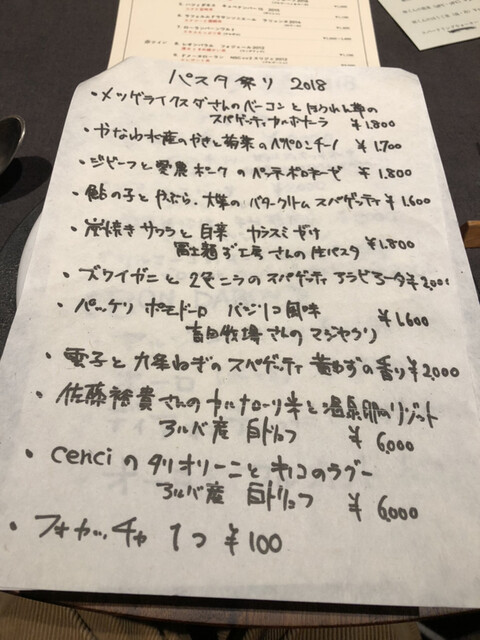 パスタ祭り 2018
・メツゲライクスダさんのベーコンとほうれん草の
スパゲッティカルボナーラ ¥1,800
・やなわ水産のかきと菊菜のペペロンチーノ ¥1,700
・ジビーフと愛農ポークのペンネボロネーゼ ¥1,800
・鮎の子とやぶら、大葉のバタークリームスパゲッティ ¥1,600
・炭焼きサワラと白菜 カラスミがけ
冨士麺ず工房さんの生パスタ ¥1,800
・ズワイガニと2色ニラのスパゲッティアラビアータ ¥2,000
・パッケリ ポモドーロ バジリコ風味
吉田牧場さんのマジヤクリ ¥1,600
・雲子と九条ねぎのスパゲッティ 黄ゆずの香り ¥2,000
・佐藤裕貴さんのカルナローリ米と温泉卵のリゾット
アルバ産 白トリュフ ¥6,000
・cenciのタリオリーニとキノコのラグー
アルバ産 白トリュフ ¥6,000
・フォカッチャ 1つ ¥100